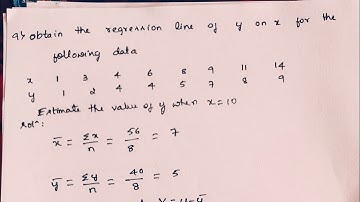 Q) obtain the regression line of y on x for the
following data
x 1 3 4 6 8 9 11 14
y 1 2 4 4 5 7 8 9
Estimate the value of y when x=10
Sol^n:
x̄ = Σx/n = 56/8 = 7
ȳ = Σy/n = 40/8 = 5
Y = y-ȳ